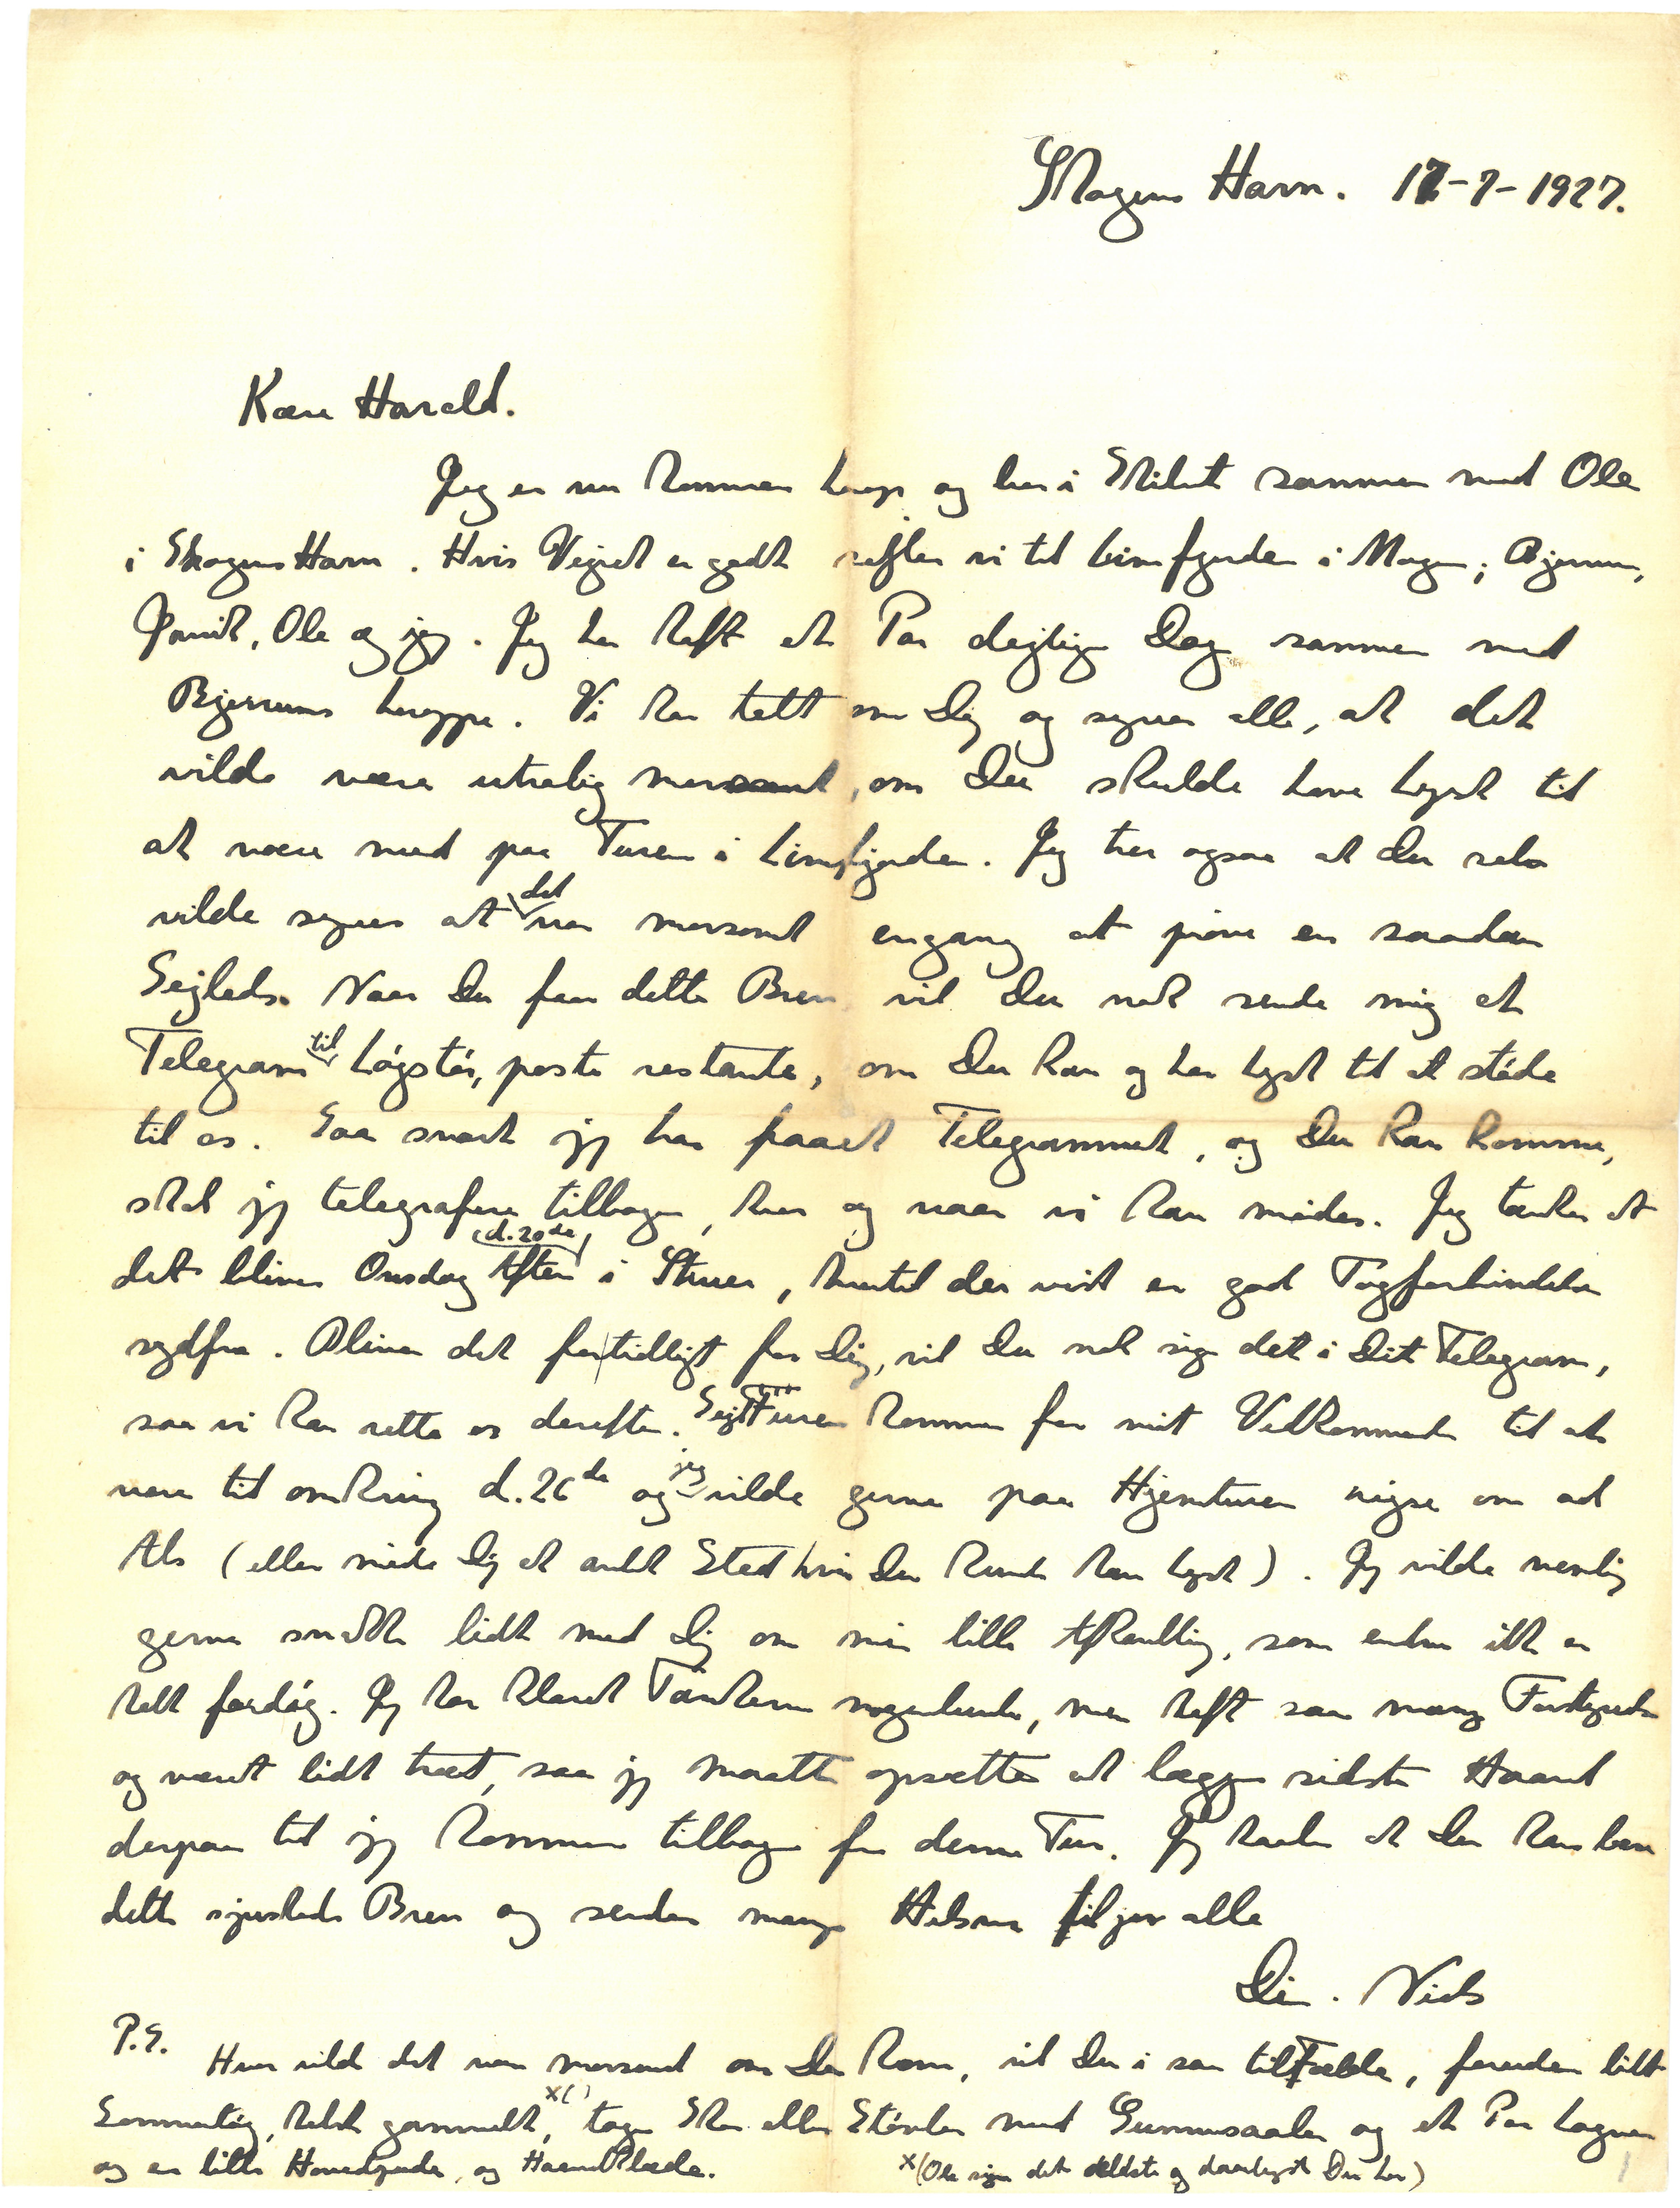 Skagens Havn. 17-7-1927.
Kære Harald.
Jeg er nu kommen herop og her i Skibet sammen med Ole
i Skagens Havn. Hvis Vejret er godt sejler vi til Limfjorden i Morgen; Bjerrum,
Ole og jeg. Jeg har haft et Par dejlige Dage sammen med
Bjerrums heroppe. Vi har talt om Dig og synes alle, at det
vilde være utrolig morsomt, om Du skulde have Lyst til
at være med paa Turen i Limfjorden. Jeg tror ogsaa at Du selv
vilde synes at det var morsomt engang at prøve en saadan
Sejlads. Naar Du faar dette Brev vil Du nok sende mig et
Telegram til Løgstør, poste restante, om Du kan og har Lyst til at støde
til os. Saa snart jeg har faaet Telegrammet, og Du kan komme,
skal jeg telegrafere tilbage, hvor og naar vi kan mødes. Jeg tænker at
det bliver Onsdag Aften (d. 20de) i Struer, hvortil der vist er god Togforbindelse
sydfra. Bliver det for tidligt for Dig, vil Du nok sige det i Dit Telegram,
saa vi kan rette os derefter. Sejlturen kommer for mit Vedkommende til at
vare til omkring d. 26de og jeg vilde gerne paa Hjemturen rejse om ad
Als (eller møde Dig et andet Sted hvis Du kunde have Lyst). Jeg vilde nemlig
gerne snakke lidt med Dig om min lille Afhandling, som endnu ikke er
helt færdig. Jeg har klaret Tankerne nogenlunde, men haft saa mange
og været lidt træt, saa jeg maatte opsætte at lægge sidste Haand
derpaa til jeg kommer tilbage fra denne Tur. Jeg haaber at Du kan læse
dette sjuskede Brev og sender mange Hilsner til jer alle
Din. Niels
P.S. Hvor vilde det være morsomt om Du kom, vil Du i saa tilfælde, foruden lidt
Sommertøj, helst gammelt, x() tage Sko eller Støvler med Gummisaaler og et Par Lagner
og en lille Hovedpude, og Haandklæde.
x(Ole siger det ældste og daarligste Du har)